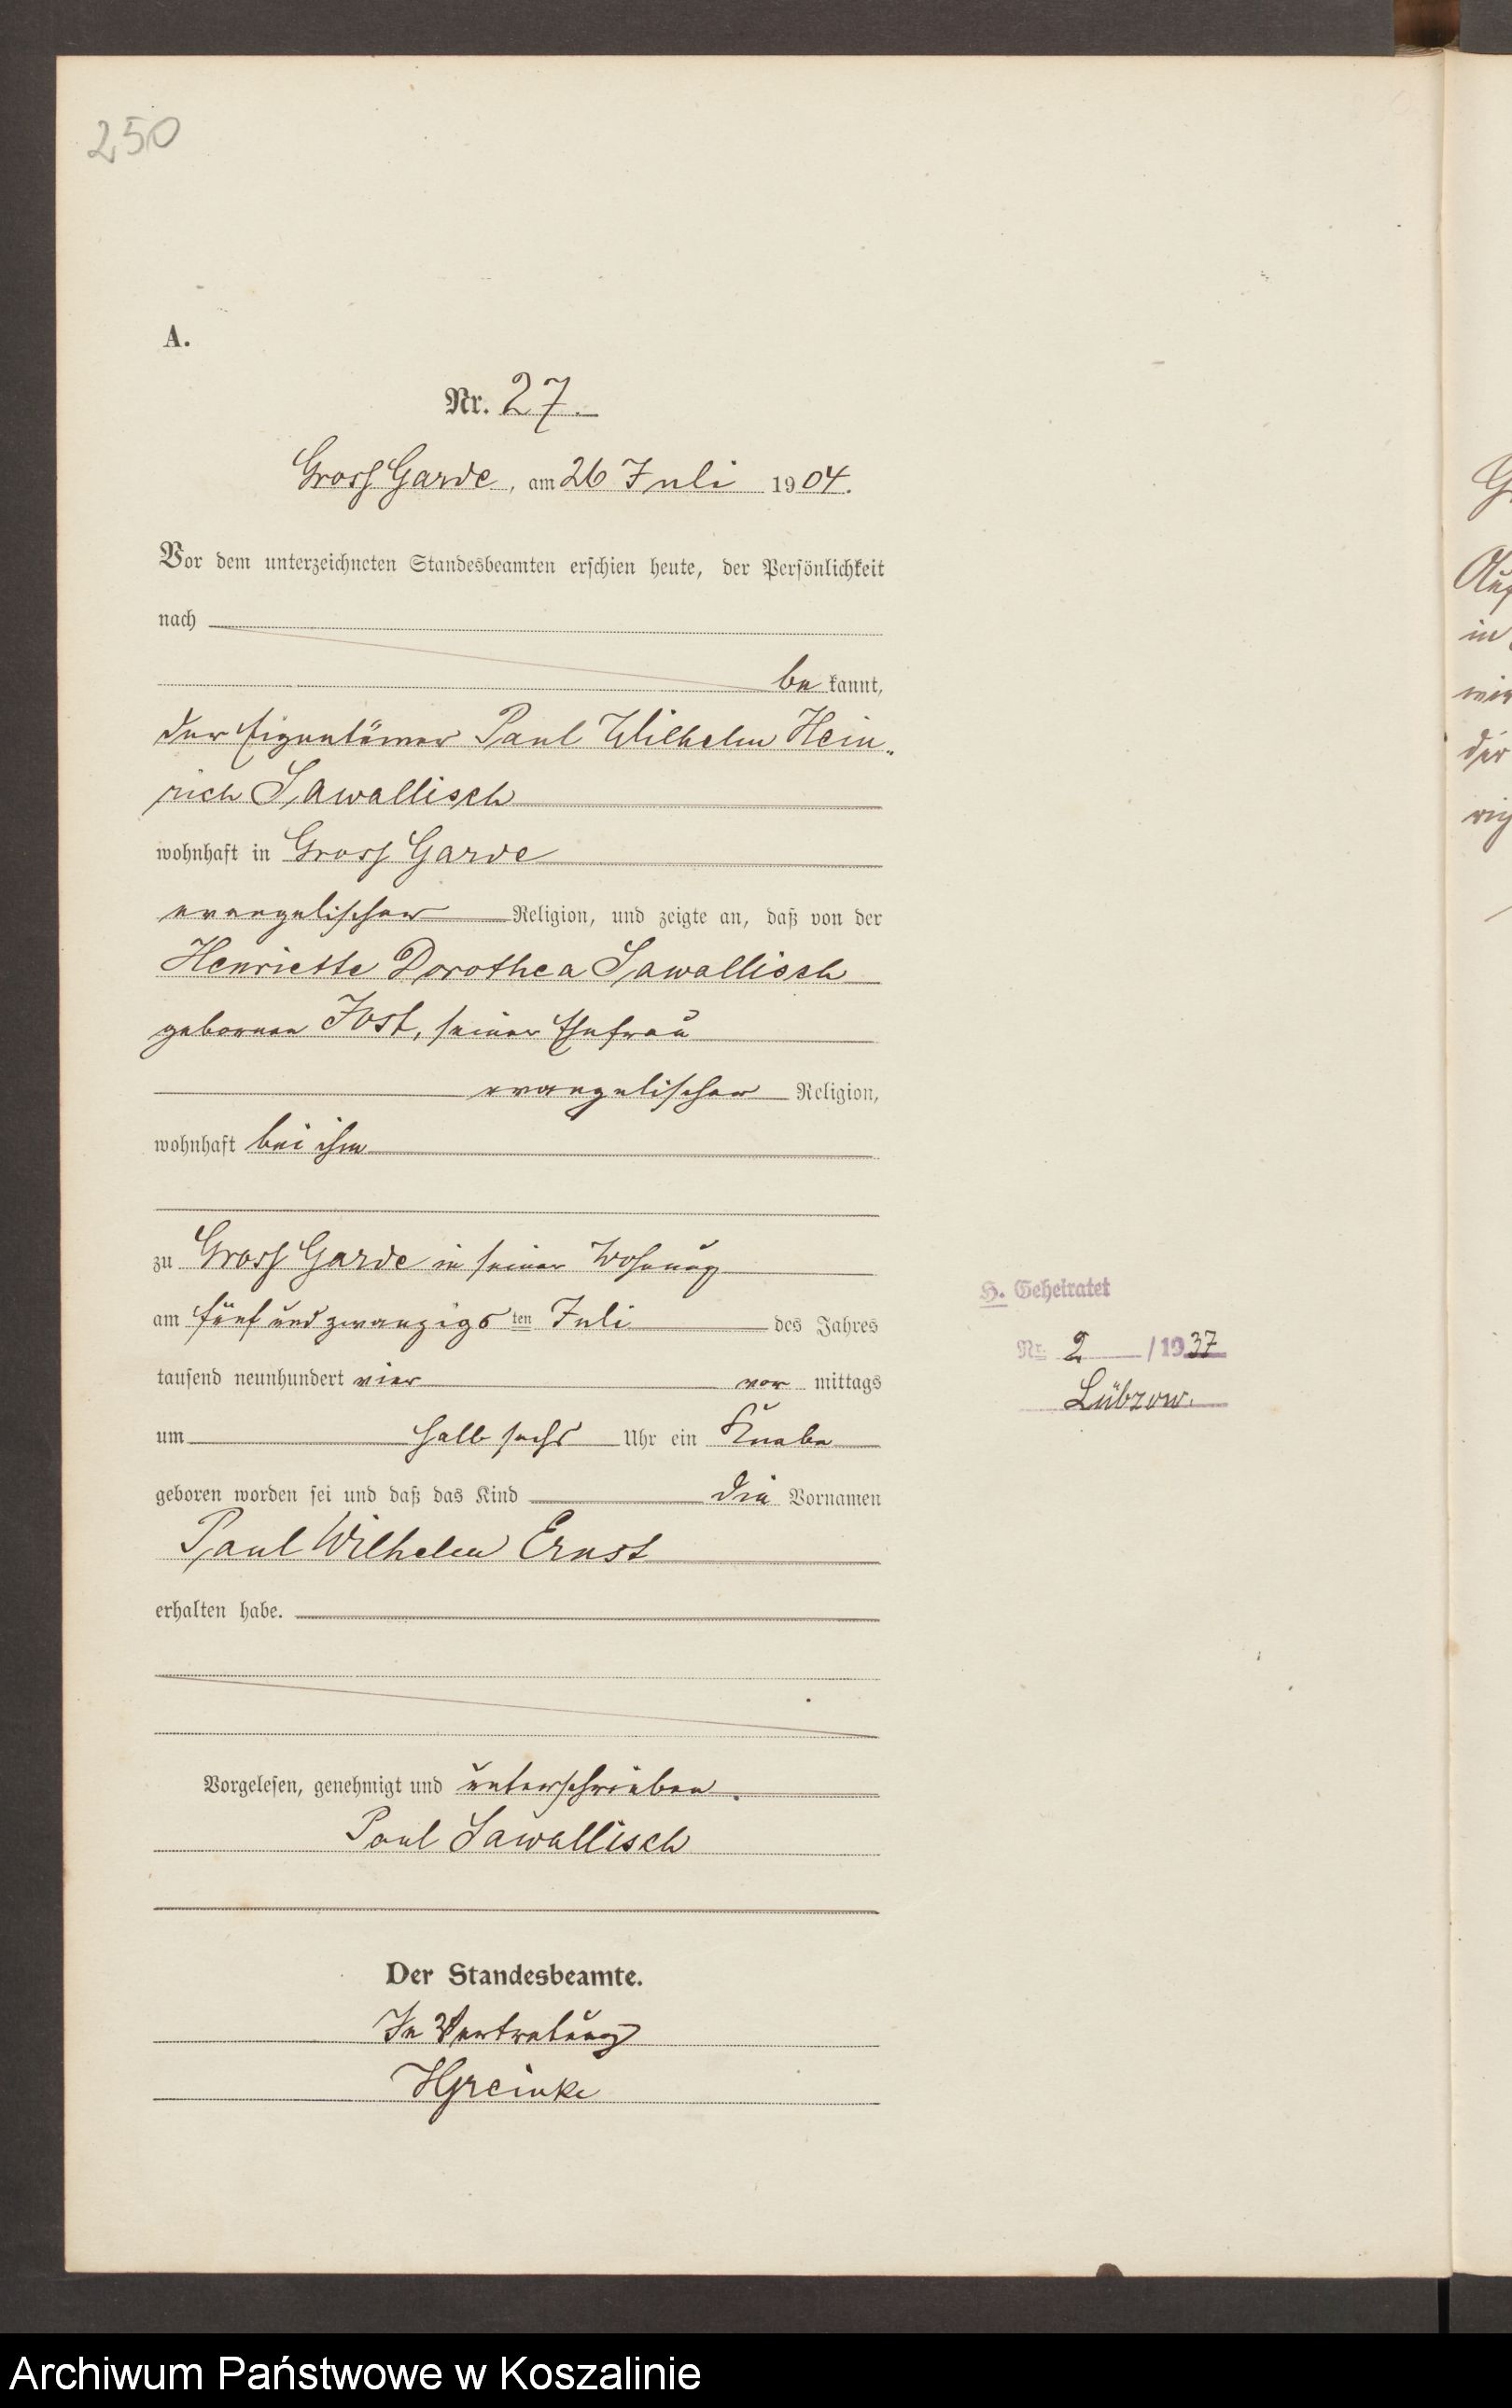 250
A.
Nr. 27.
Gross Garde, am 26 Juli 1904.
Vor dem unterzeichneten Standesbeamten erschien heute, der Persönlichkeit
nach
be kannt,
der Eigentümer Paul Wilhelm Hein„
rich Sawallisch
wohnhaft in Gross Garde
evangelischer Religion, und zeigte an, daß von der
Henriette Dorothea Sawallisch
geborenen Jost, seiner Ehefrau
evangelischer Religion,
wohnhaft bei ihm
zu Gross Garde in seiner Wohnung
am fünf und zwanzigs ten Juli des Jahres
tausend neunhundert vier vor mittags
um halb sechs Uhr ein Knabe
geboren worden sei und daß das Kind die Vornamen
Paul Wilhelm Ernst
erhalten habe.
Vorgelesen, genehmigt und unterschrieben.
Paul Sawallisch
Der Standesbeamte.
In Vertretung
H. Geheiratet
Nr. 2 / 1937
Lübzow.
Archiwum Państwowe w Koszalinie